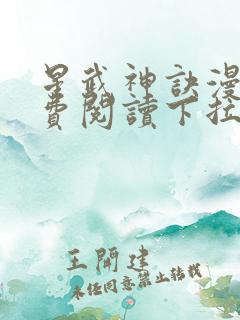 星武神訣漫
費閱讀下拉
王開建
未经同意禁止转载